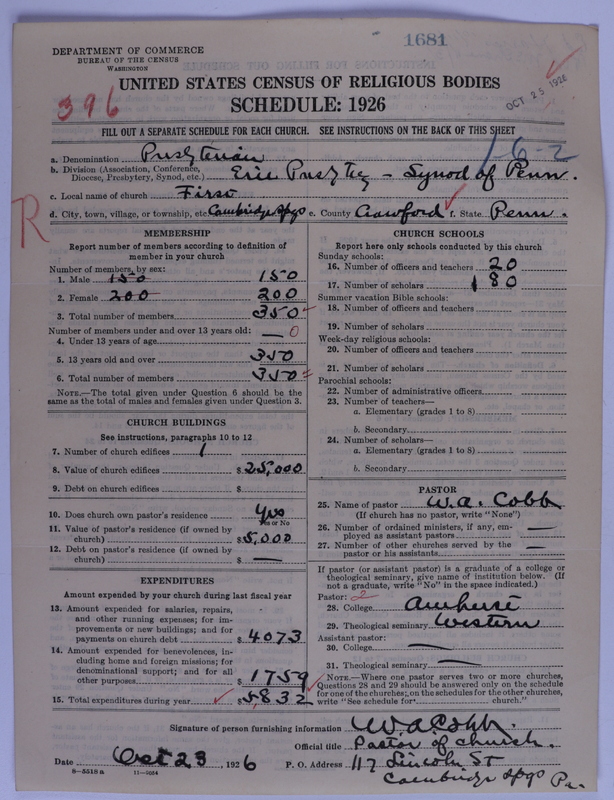 1681
DEPARTMENT OF COMMERCE
BUREAU OF THE CENSUS
WASHINGTON
UNITED STATES CENSUS OF RELIGIOUS BODIES
SCHEDULE: 1926
396
OCT 25 1926
FILL OUT A SEPARATE SCHEDULE FOR EACH CHURCH. SEE INSTRUCTIONS ON THE BACK OF THIS SHEET
1-6-2
a. Denomination Presbyterian
b. Division (Association, Conference, Diocese, Presbytery, Synod, etc.) Erie Presbytery - Synod of Penn.
c. Local name of church First
d. City, town, village, or township, etc. Cambridge Spgs e. County Crawford f. State Penn.
R
MEMBERSHIP
Report number of members according to definition of
member in your church
Number of members, by sex:
1. Male 150 150
2. Female 200 200
3. Total number of members 350
Number of members under and over 13 years old:
4. Under 13 years of age — 0
5. 13 years old and over 350
6. Total number of members 350
NOTE.—The total given under Question 6 should be
same as the total of males and females given under Question 3.
CHURCH BUILDINGS
See instructions, paragraphs 10 to 12
7. Number of church edifices 1
8. Value of church edifices $25,000
9. Debt on church edifices $
10. Does church own pastor's residence Yes
Yes or No
11. Value of pastor's residence (if owned by
church) $5,000
12. Debt on pastor's residence (if owned by
church) $ —
EXPENDITURES
Amount expended by your church during last fiscal year
13. Amount expended for salaries, repairs,
and other running expenses; for im-
provements or new buildings; and for
payments on church debt $4073
14. Amount expended for benevolences, in-
cluding home and foreign missions; for
denominational support; and for all
other purposes $1759
15. Total expenditures during year $5832
CHURCH SCHOOLS
Report here only schools conducted by this church
Sunday schools:
16. Number of officers and teachers 20
17. Number of scholars 180
Summer vacation Bible schools:
18. Number of officers and teachers
19. Number of scholars
Week-day religious schools:
20. Number of officers and teachers
21. Number of scholars
Parochial schools:
22. Number of administrative officers
23. Number of teachers—
a. Elementary (grades 1 to 8)
b. Secondary
24. Number of scholars—
a. Elementary (grades 1 to 8)
b. Secondary
PASTOR
25. Name of pastor W. A. Cobb
(If church has no pastor, write "None")
26. Number of ordained ministers, if any, em-
ployed as assistant pastors —
27. Number of other churches served by the
pastor or his assistants —
If pastor (or assistant pastor) is a graduate of a college or
theological seminary, give name of institution below. (If
not a graduate, write "No" in the space indicated.)
Pastor: 2
28. College Amherst
29. Theological seminary Western
Assistant pastor:
30. College —
31. Theological seminary —
NOTE.—Where one pastor serves two or more churches,
Questions 28 and 29 should be answered only on the schedule
for one of the churches; on the schedules for the other churches,
write "See schedule for church."
Signature of person furnishing information W. A. Cobb.
Official title Pastor of Church.
Date Oct 23, 1926 P. O. Address 117 Lincoln St
Cambridge Spgs Pa.
8-5518 a 11-1034